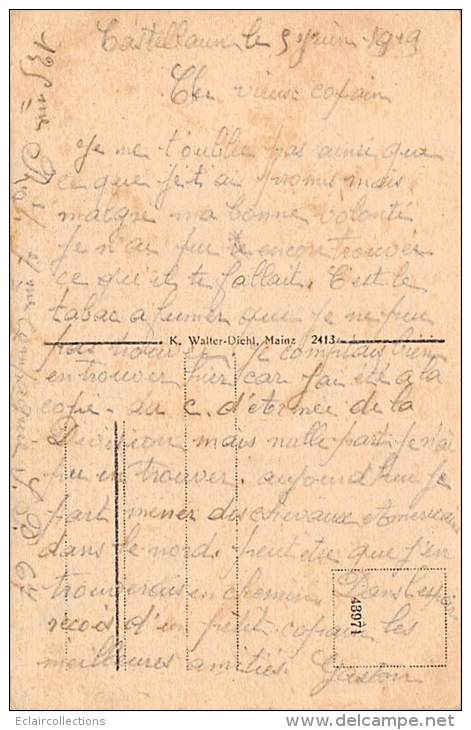 Castellaun le 5 Juin 1919
Cher vieux copain
Je ne t'oublie pas ainsi que
ce que je t'ai promis mais
malgré ma bonne volonté
Je n'ai pu encore trouver
ce qu'il te fallait. C'est le
tabac a fumer que je ne peu
K. Walter-Diehl, Mainz 2413
pas trouver. Je comptais bien
en trouver hier car j'ai été a la
cope. du C. d'Armée de la
Division mais nulle part je n'ai
pu en trouver. aujourd'hui je
part mener des chevaux Americains
dans le nord. peut etre que j'en
trouverais en chemin. Dans l'espoire
recois d'un petit copain les
meilleures amitiés. Gaston
48971
135 eme R
4 eme Compagnie S.P 67
Eclaircollections